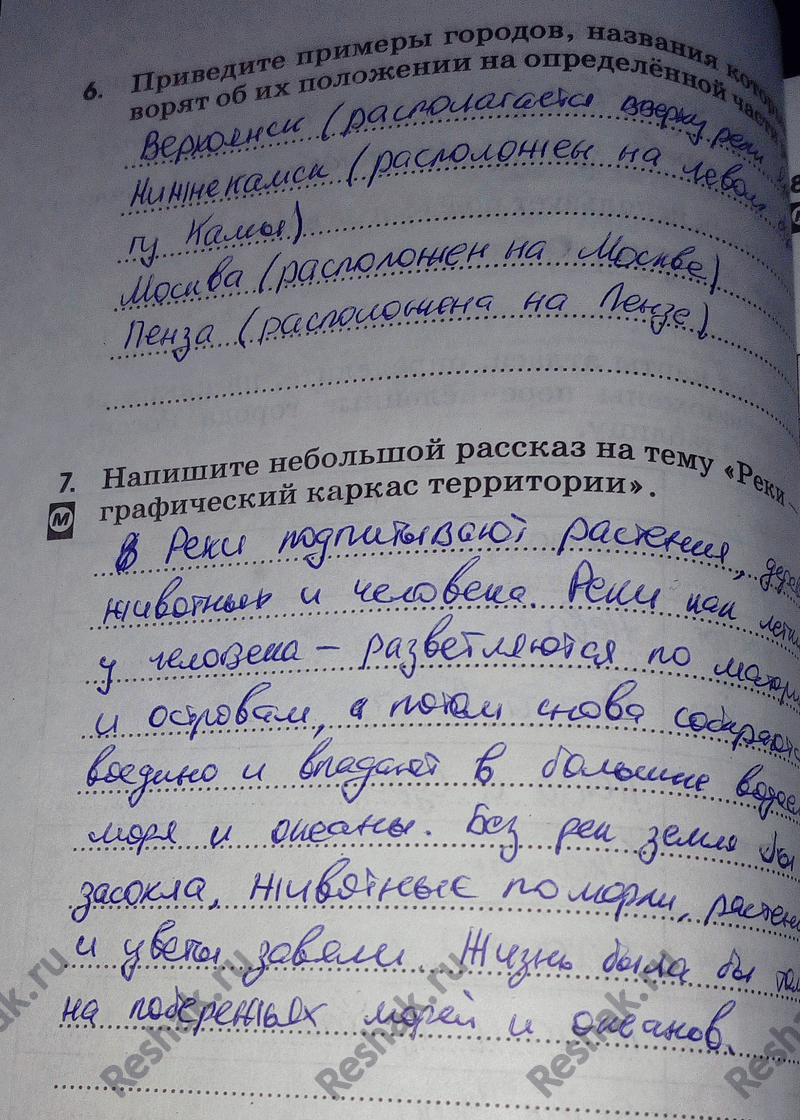 6. Приведите примеры городов, названия которы
ворят об их положении на определённой части
Верхоянск (располагается вверху реки
Нижнекамск (расположен на левом
гу Камы)
Москва (расположен на Москве)
Пенза (расположена на Пензе)
7. Напишите небольшой рассказ на тему «Реки –
М графический каркас территории».
Реки подпитывают растения, дере
животных и человека. Реки как легки
у человека – разветляются по матери
и островам, а потом снова собираютс
воедино и впадают в большие водоем
моря и океаны. Без рек земля бы
засохла, животные поморли, растени
и цветы завяли. Жизнь была бы тол
на побережьях морей и океанов.
ak.ru Reshak.ru Reshak.ru Reshak.ru